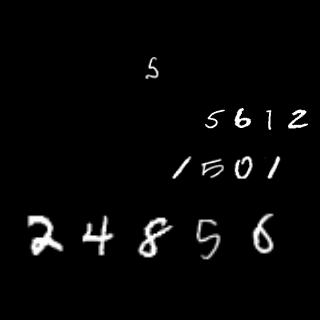 5
5612
1501
24856